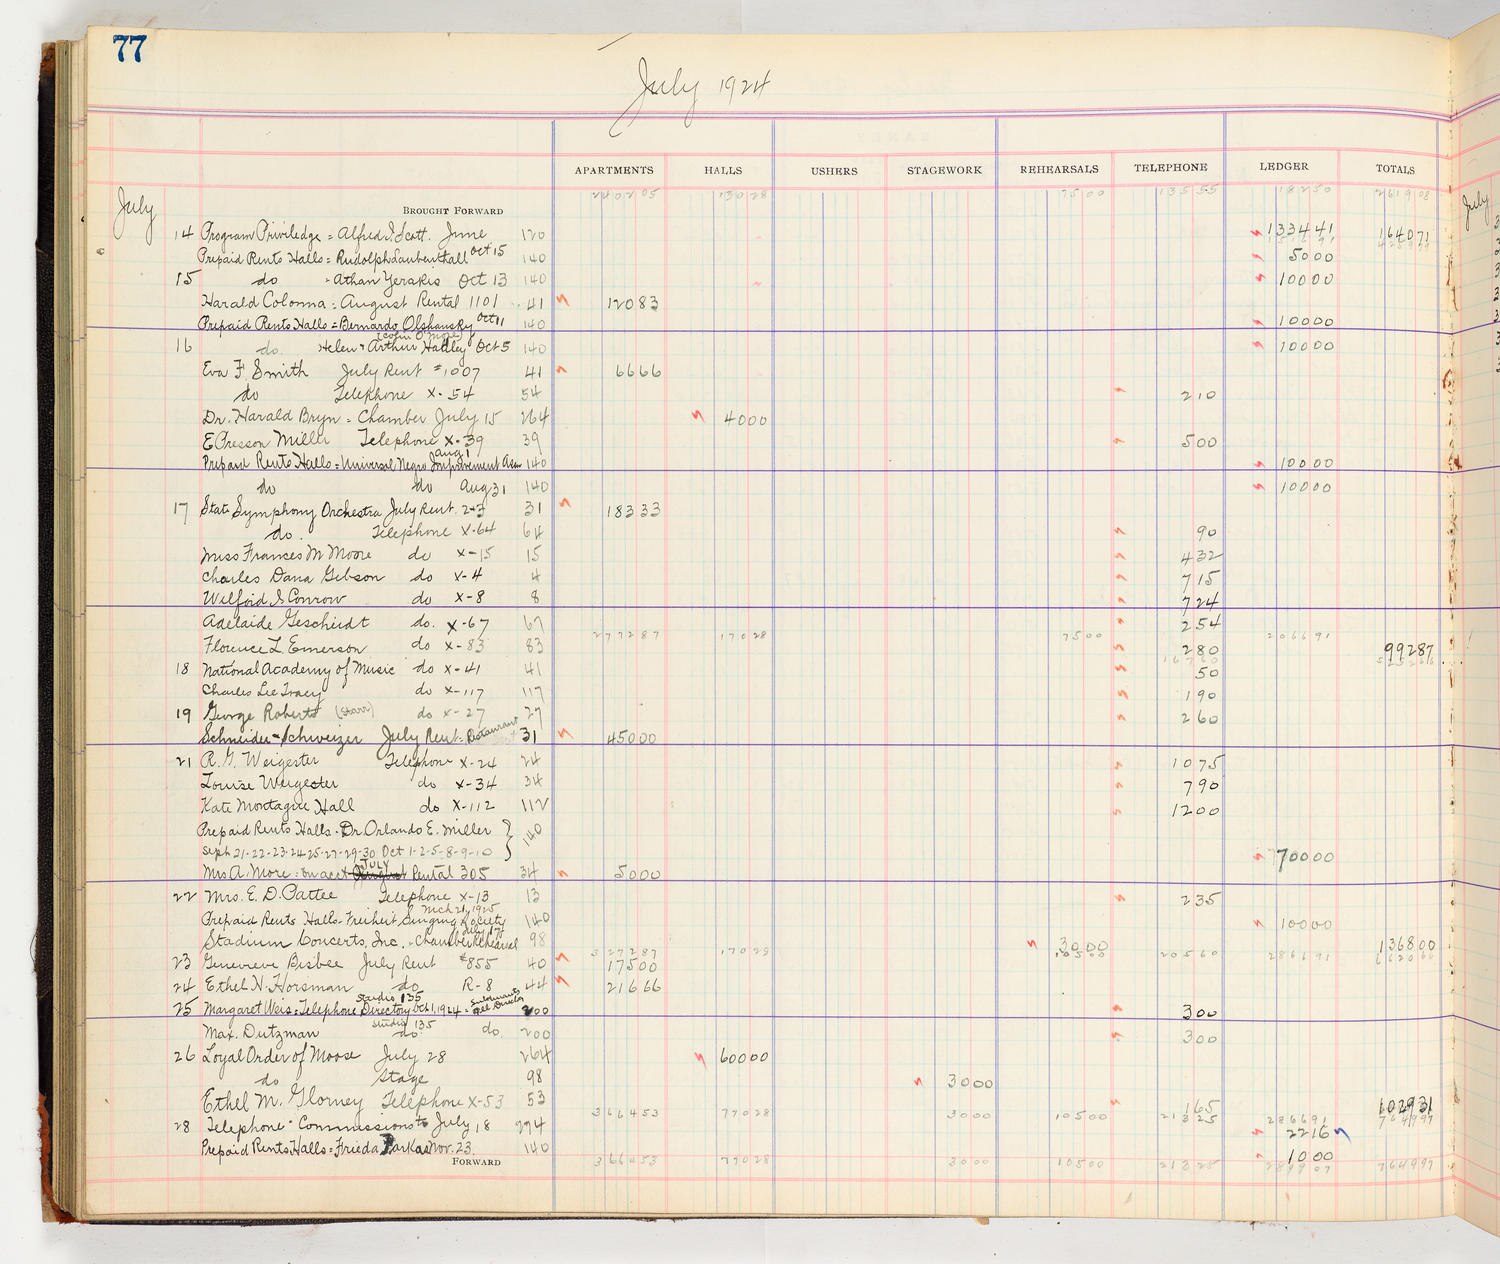 77
July 1924
APARTMENTS HALLS USHERS STAGEWORK REHEARSALS TELEPHONE LEDGER TOTALS
240205 13028 7500 13555 18250 261908
July
BROUGHT FORWARD
14 Program Priviledge = Alfred I. Scott. June 120 133441 164071
Prepaid Rents Halls = Rudolph Laubenthall Oct 15 140 5000
15 do = Athan Yerakis Oct 13 140 10000
Harald Colonna = August Rental 1101 41 12083
Prepaid Rents Halls = Bernardo Olshansky Oct 11 140 10000
(Colin O'More)
16 do. Helen & Arthur Hadley Oct 5 140 10000
Eva F. Smith July Rent #1007 41 6666
do Telephone X-54 54 210
Dr. Harald Bryn = Chamber July 15 264 4000
E Presson Miller Telephone X-39 39 500
Prepaid Rents Halls = Universal Negro Improvement Assn Aug 1 140 10000
do do Aug 31 140 10000
17 State Symphony Orchestra July Rent. 31 18333
do. Telephone X-64 64 90
Miss Frances M Moore do X-15 15 432
Charles Dana Gibson do X-4 4 715
Wilford S Conrow do X-8 8 724
Adelaide Gescheidt do. X-67 67 254
277287 17028 7500 206691
Florence L. Emerson do X-83 83 280 99287
18 National Academy of Music do X-41 41 50
Charles Lee Tracy do X-117 117 190
19 George Roberts (Starr) do X-27 27 260
Schneider & Schweizer July Rent = Restaurant 31 45000
21 R. G. Weigester Telephone X-24 24 1075
Louise Weigester do X-34 34 790
Kate Montague Hall do X-112 112 1200
Prepaid Rents Halls - Dr. Orlando E. Miller } 140
Sept 21-22-23-24-25-27-29-30 Oct 1-2-5-8-9-10 70000
Mrs A. More = on acct July August Rental 305 34 5000
22 Mrs. E. D. Pattee Telephone X-13 13 235
Prepaid Rents Halls - Freiheit Singing Society Mch 21, 1925 140 10000
Stadium Concerts, Inc. = Chamber Rehearsal July 17 98 3000 136800
327287 17028 10500 20560 286691 662066
23 Genevieve Bisbee July Rent #855 40 17500
24 Ethel N. Horsman do R-8 44 21666
Studio 135
25 Margaret Weis = Telephone Directory Oct 1, 1924 = 200 300
Studio 135
Max. Dutzman do do. 200 300
26 Loyal Order of Moose July 28 264 60000
do Stage 98 3000
Ethel M. Glorney Telephone X-53 53 165 102931
366453 77028 3000 10500 21325 286691 764997
28 Telephone Commissions to July 18 294 2216
Prepaid Rents Halls = Frieda Nov. 23. 140 1000
FORWARD 366453 77028 3000 10500 21325 289907 764997
July